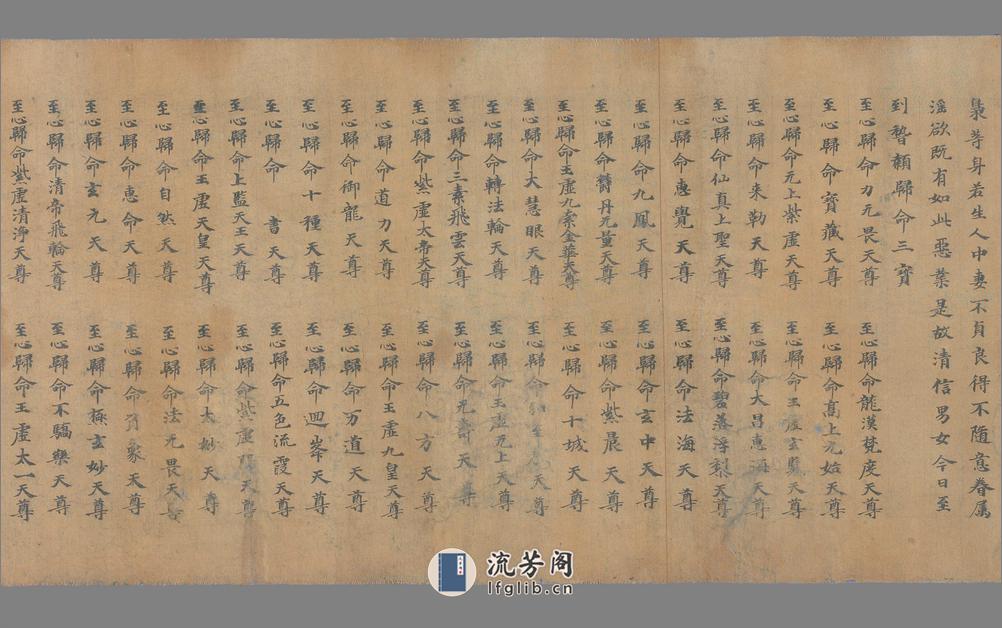 梟等身若生人中妻不貞良得不隨意眷属
滛欲既有如此惡業是故清信男女今日至
到暫顙歸命三寶
至心歸命龍漢梵度天尊
至心歸命力无畏天尊
至心歸命高上元始天尊
至心歸命寶藏天尊
至心歸命玉虛玄監天尊
至心歸命元上紫虛天尊
至心歸命大昌惠海天尊
至心歸命來勒天尊
至心歸命碧落浮梨天尊
至心歸命仙真上聖天尊
至心歸命法海天尊
至心歸命惠覺天尊
至心歸命玄中天尊
至心歸命九鳳天尊
至心歸命紫晨天尊
至心歸命贊丹无量天尊
至心歸命十城天尊
至心歸命玉虛九素金華天尊
至心歸命天尊
至心歸命大慧眼天尊
至心歸命玉虛元上天尊
至心歸命轉法輪天尊
至心歸命元壽天尊
至心歸命三素飛雲天尊
至心歸命八方天尊
至心歸命紫虛太帝天尊
至心歸命玉虛九皇天尊
至心歸命道力天尊
至心歸命万道天尊
至心歸命御龍天尊
至心歸命迴峯天尊
至心歸命十種天尊
至心歸命五色流霞天尊
至心歸命 書天尊
至心歸命紫虛天尊
至心歸命上監天王天尊
至心歸命太妙天尊
至心歸命玉虛天皇天尊
至心歸命法无畏天尊
至心歸命自然天尊
至心歸命衆天尊
至心歸命惠命天尊
至心歸命極玄妙天尊
至心歸命玄元天尊
至心歸命不驕樂天尊
至心歸命清帝飛輪天尊
至心歸命玉虛太一天尊
至心歸命紫虛清淨天尊
流芳阁
lfglib.cn